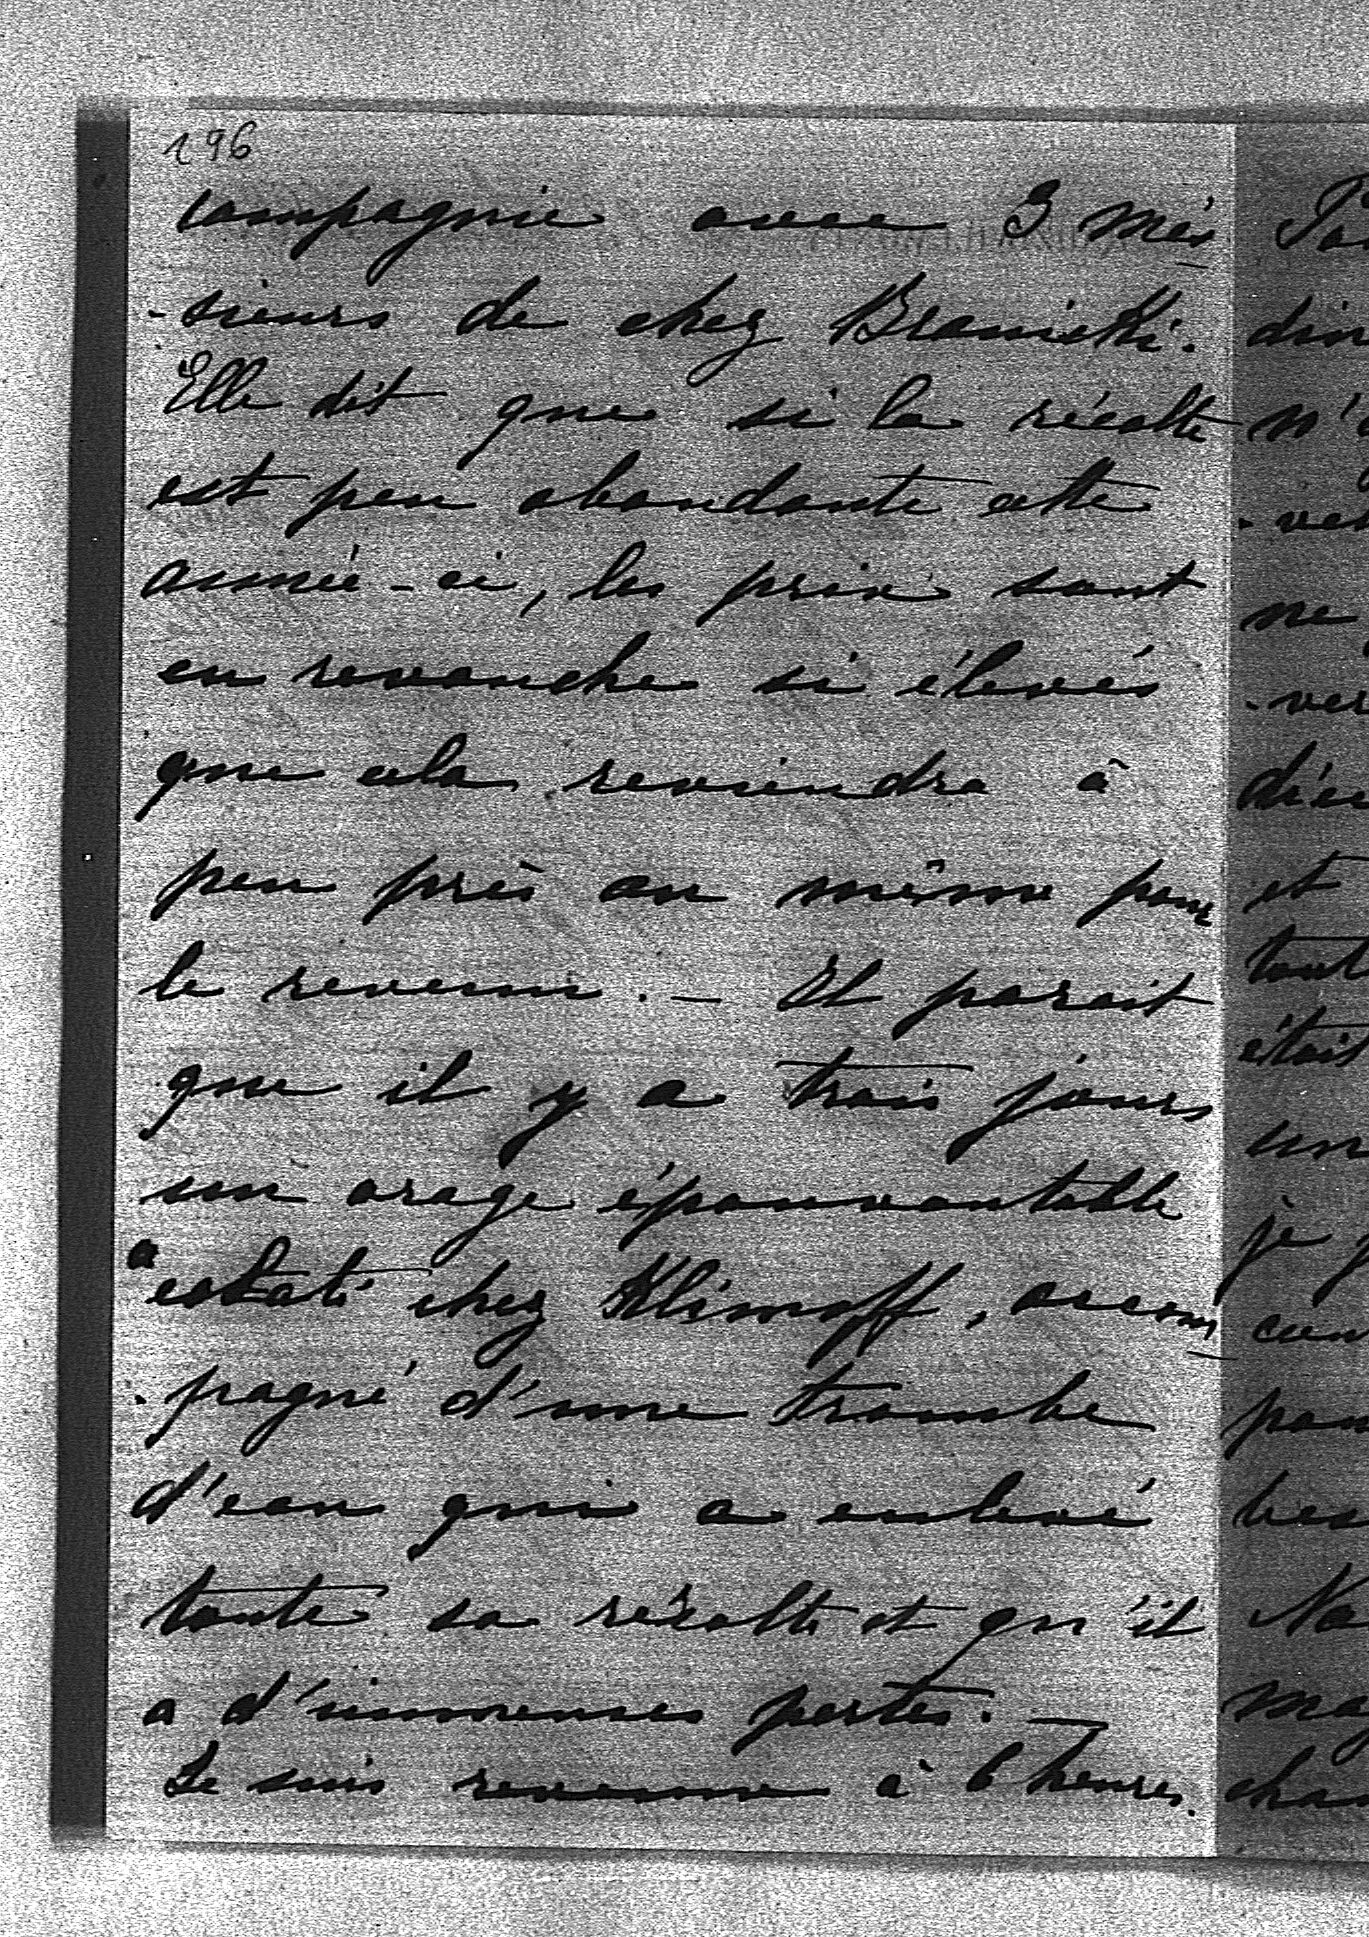 196
compagnie avec 3 mes
-sieurs de chez Branicki.
Elle dit que si la récolte
est peu abondante cette
année-ci, les prix sont
en revanche si élevés
que cela reviendra à
peu près au même pour
le revenu. — Il parait
que il y a trois jours
un orage épouvantable
a éclaté chez Klimoff, accom
-pagné d'une trombe
d'eau qui a enlevé
toute sa récolte et qu'il
a d'immenses pertes. —
Je suis revenue à 6 heures.
din
-ver
ne
-ver
et
tout
était
un
je